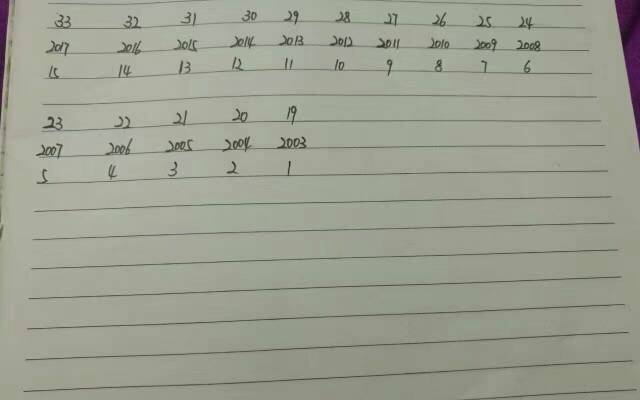 33 32 31 30 29 28 27 26 25 24
2017 2016 2015 2014 2013 2012 2011 2010 2009 2008
15 14 13 12 11 10 9 8 7 6
23 22 21 20 19
2007 2006 2005 2004 2003
5 4 3 2 1